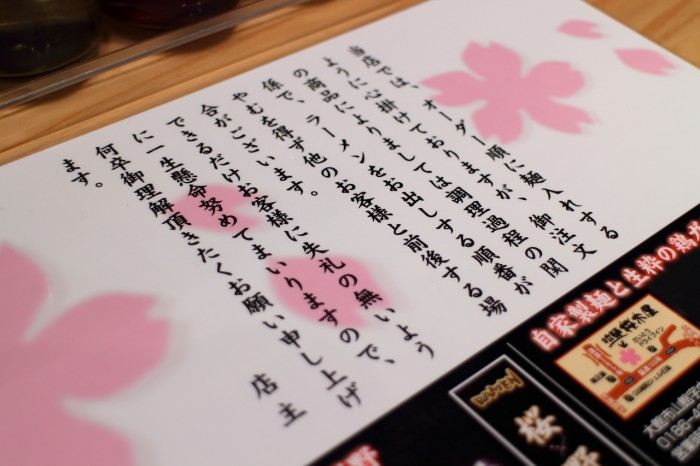 当店では、オーダー順に麺入れする
ように心掛けておりますが、御注文
の商品によりましては調理過程の関
係で、ラーメンをお出しする順番が
やむを得ず他のお客様と前後する場
合がございます。
できるだけお客様に失礼の無いよう
に一生懸命努めてまいりますので、
何卒御理解頂きたくお願い申し上げ
ます。
店主
自家製麺と生粋の鶏ガ
桜
野